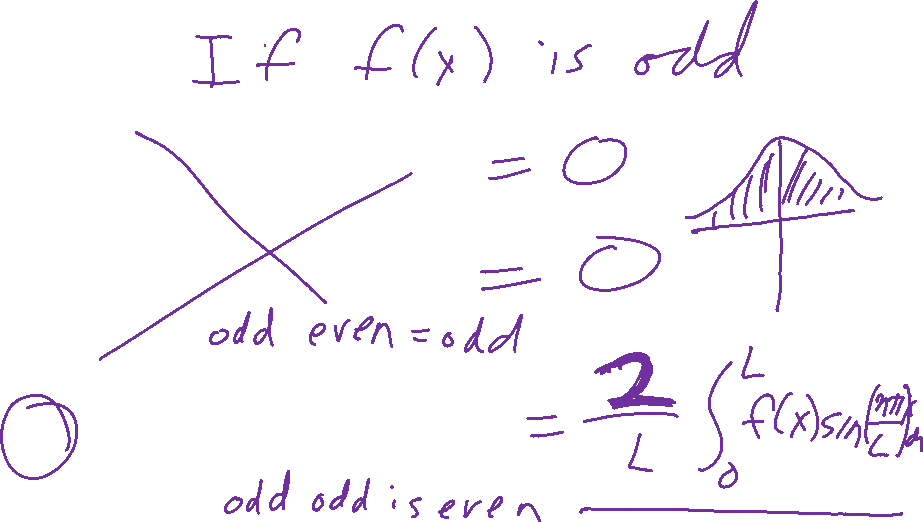 If f(x) is odd
= 0
= 0
odd even = odd
= 2/L ∫₀ᴸ f(x) sin(nπx/L) dx
odd odd is even